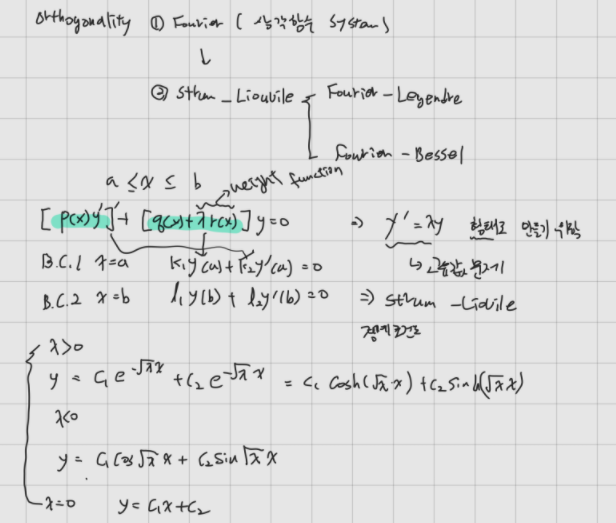 Orthogonality ① Fourier ( 삼각함수 System)
↓
② Sturm _ Liouvile Fourier - Legendre
Fourier - Bessel
a ≤ x ≤ b → weight function
[ p(x)y′ ]′ + [ q(x) + λr(x) ] y = 0 ⇒ y′ = λy 형태로 만들기 위함
↳ 고유값 문제
B.C.1 x=a k₁y(a) + k₂y′(a) = 0
B.C.2 x=b l₁y(b) + l₂y′(b) = 0 ⇒ Sturm - Liouvile
경계조건
λ>0
y = C₁e^-√λx + C₂e^-√λx = C₁ Cosh(√λx) + C₂ Sinh(√λx)
λ<0
y = C₁ Cos√λx + C₂ Sin√λx
λ=0 y = C₁x + C₂